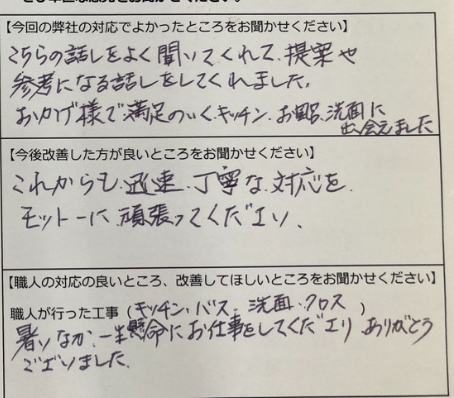 【今回の弊社の対応でよかったところをお聞かせください】
こちらの話しをよく聞いてくれて、提案や
参考になる話しをしてくれました。
おかげ様で満足のいくキッチン、お風呂、洗面に
出会えました
【今後改善した方が良いところをお聞かせください】
これからも、迅速、丁寧な対応を
モットーに頑張ってください。
【職人の対応の良いところ、改善してほしいところをお聞かせください】
職人が行った工事（キッチン・バス・洗面・クロス ）
暑いなか、一生懸命にお仕事をしてくださり ありがとう
ございました。